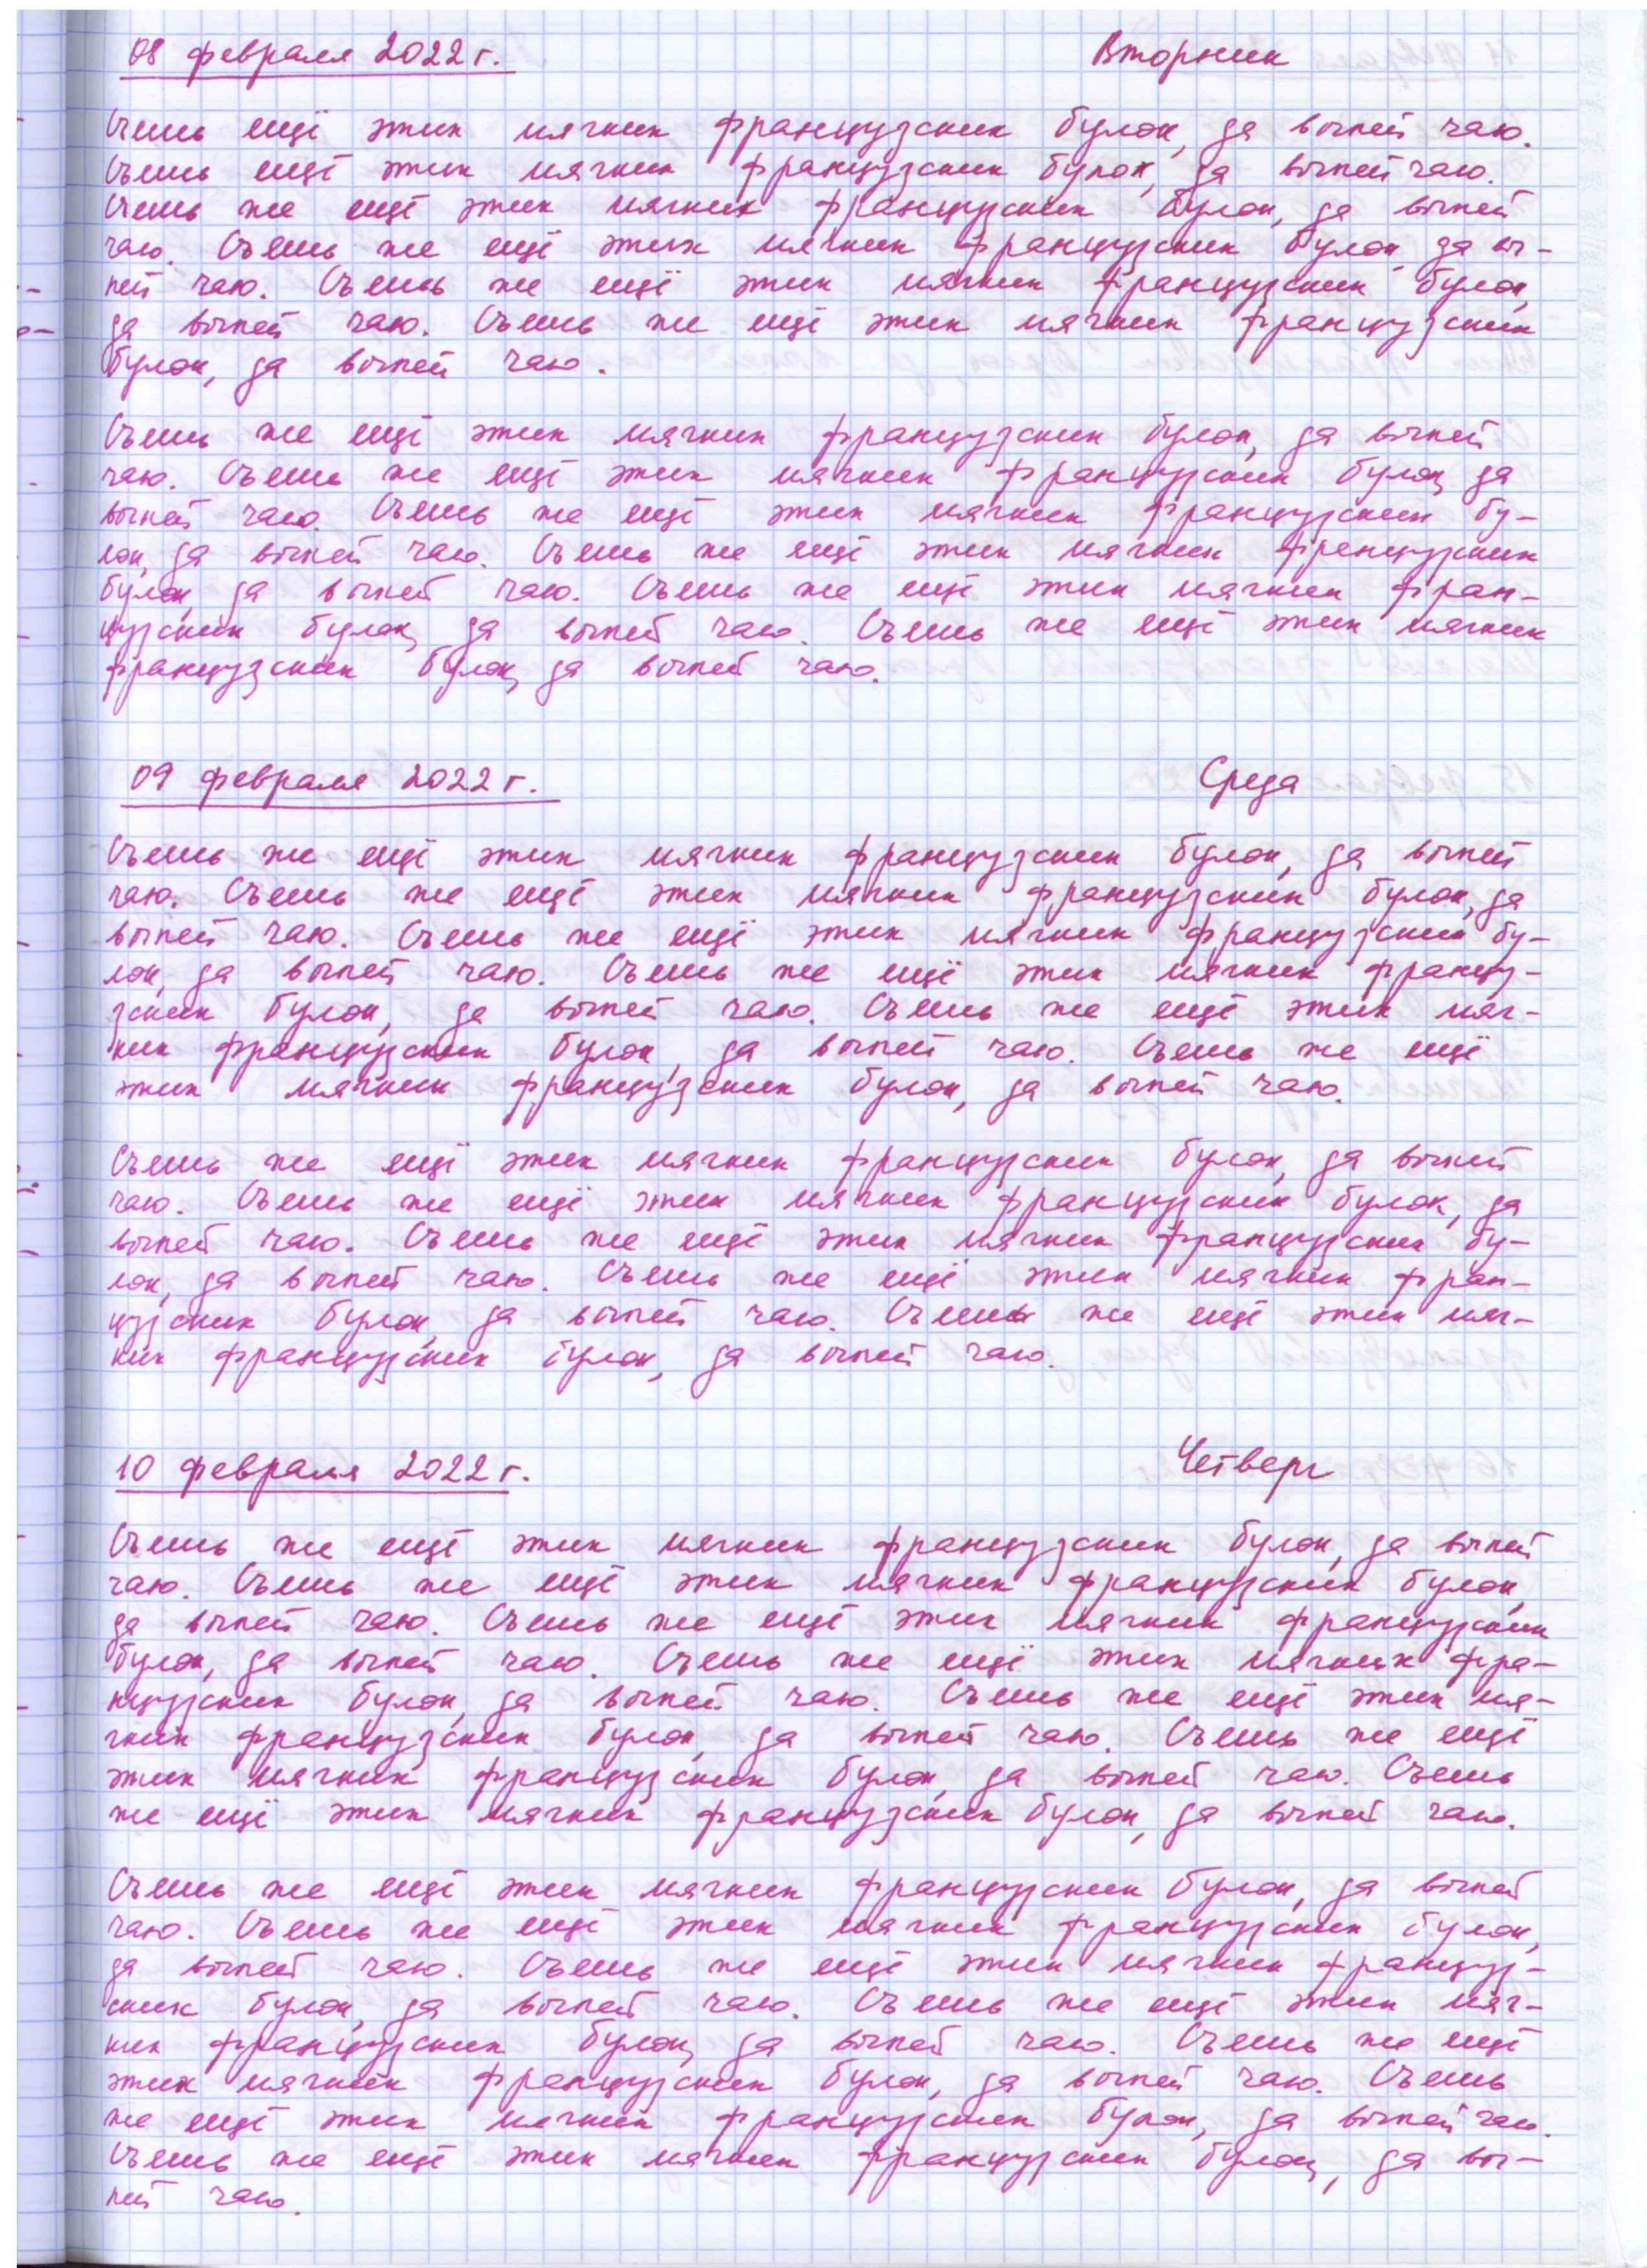 08 февраля 2022 г. Вторник
Съешь ещё этих мягких французских булок, да выпей чаю.
Съешь ещё этих мягких французских булок, да выпей чаю.
Съешь же ещё этих мягких французских булок, да выпей
чаю. Съешь же ещё этих мягких французских булок, да вы-
пей чаю. Съешь же ещё этих мягких французских булок,
да выпей чаю. Съешь же ещё этих мягких французских
булок, да выпей чаю.
Съешь же ещё этих мягких французских булок, да выпей
чаю. Съешь же ещё этих мягких французских булок, да
выпей чаю. Съешь же ещё этих мягких французских бу-
лок, да выпей чаю. Съешь же ещё этих мягких французских
булок, да выпей чаю. Съешь же ещё этих мягких фран-
цузских булок, да выпей чаю. Съешь же ещё этих мягких
французских булок, да выпей чаю.
09 февраля 2022 г. Среда
Съешь же ещё этих мягких французских булок, да выпей
чаю. Съешь же ещё этих мягких французских булок, да
выпей чаю. Съешь же ещё этих мягких французских бу-
лок, да выпей чаю. Съешь же ещё этих мягких францу-
зских булок, да выпей чаю. Съешь же ещё этих мяг-
ких французских булок, да выпей чаю. Съешь же ещё
этих мягких французских булок, да выпей чаю.
Съешь же ещё этих мягких французских булок, да выпей
чаю. Съешь же ещё этих мягких французских булок, да
выпей чаю. Съешь же ещё этих мягких французских бу-
лок, да выпей чаю. Съешь же ещё этих мягких фран-
цузских булок, да выпей чаю. Съешь же ещё этих мяг-
ких французских булок, да выпей чаю.
10 февраля 2022 г. Четверг
Съешь же ещё этих мягких французских булок, да выпей
чаю. Съешь же ещё этих мягких французских булок,
да выпей чаю. Съешь же ещё этих мягких французских
булок, да выпей чаю. Съешь же ещё этих мягких фра-
нцузских булок, да выпей чаю. Съешь же ещё этих мя-
гких французских булок, да выпей чаю. Съешь же ещё
этих мягких французских булок, да выпей чаю. Съешь
же ещё этих мягких французских булок, да выпей чаю.
Съешь же ещё этих мягких французских булок, да выпей
чаю. Съешь же ещё этих мягких французских булок,
да выпей чаю. Съешь же ещё этих мягких француз-
ских булок, да выпей чаю. Съешь же ещё этих мяг-
ких французских булок, да выпей чаю. Съешь же ещё
этих мягких французских булок, да выпей чаю. Съешь
же ещё этих мягких французских булок, да выпей чаю.
Съешь же ещё этих мягких французских булок, да вы-
пей чаю.